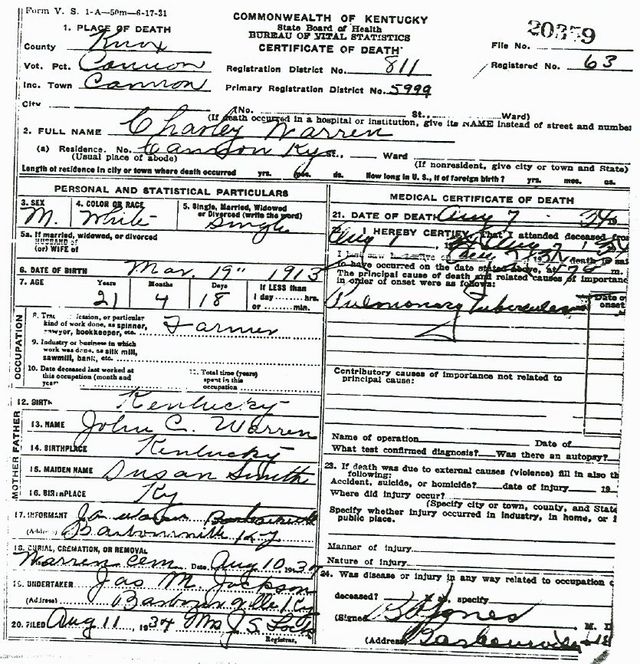 Form V. S. 1-A—50m—6-17-31
COMMONWEALTH OF KENTUCKY
State Board of Health
BUREAU OF VITAL STATISTICS
CERTIFICATE OF DEATH
20359
File No.
Registered No. 63
1. PLACE OF DEATH
County Knox
Vot. Pct. Cannon
Inc. Town Cannon
City
Registration District No. 811
Primary Registration District No. 5999
(No. St., Ward)
(If death occurred in a hospital or institution, give its NAME instead of street and number
2. FULL NAME Charley Warren
(a) Residence. No. Cannon Ky St., Ward
(Usual place of abode) (If nonresident, give city or town and State)
Length of residence in city or town where death occurred yrs. mos. ds. How long in U. S., if of foreign birth? yrs. mos. ds.
PERSONAL AND STATISTICAL PARTICULARS
3. SEX M. 4. COLOR OR RACE White 5. Single, Married, Widowed or Divorced (write the word) Single
5a. If married, widowed, or divorced
HUSBAND of
(or) WIFE of
6. DATE OF BIRTH Mar. 19" 1913
7. AGE Years 21 Months 4 Days 18 If LESS than
1 day hrs.
or min.
OCCUPATION
kind of work done, as spinner, Farmer
sawyor, bookkeeper, etc.
9. Industry or business in which
work was done, as silk mill,
sawmill, bank, etc.
10. Date deceased last worked at
this occupation (month and
year
11. Total time (years)
spent in this
occupation
12. BIRTH Kentucky
FATHER
13. NAME John C. Warren
14. BIRTHPLACE Kentucky
MOTHER
15. MAIDEN NAME Susan Smith
16. BIRTHPLACE Ky
17. INFORMANT
Barbourville Ky
18. BURIAL, CREMATION, OR REMOVAL
Warren Cem Date Aug 10 193
19. UNDERTAKER Jas M. Jackson
(Address) Barbourville Ky
20. FILED Aug 11, 1934 Mrs J S
Registrar.
MEDICAL CERTIFICATE OF DEATH
21. DATE OF DEATH Aug 7 34
I HEREBY CERTIFY, That I attended deceased from
Aug 1
to have occurred on the date stated above, at m
The principal cause of death and related causes of importance
in order of onset were as follows:
Date of
onset
Pulmonary Tuberculosis
Contributory causes of importance not related to
principal cause:
Name of operation Date of
What test confirmed diagnosis? Was there an autopsy?
23. If death was due to external causes (violence) fill in also th
following:
Accident, suicide, or homicide? date of injury 19
Where did injury occur?
(Specify city or town, county, and State
Specify whether injury occurred in industry, in home, or i
public place.
Manner of injury
Nature of injury
24. Was disease or injury in any way related to occupation o
deceased? specify
(Signed Jones M. D
(Address) Barbourville